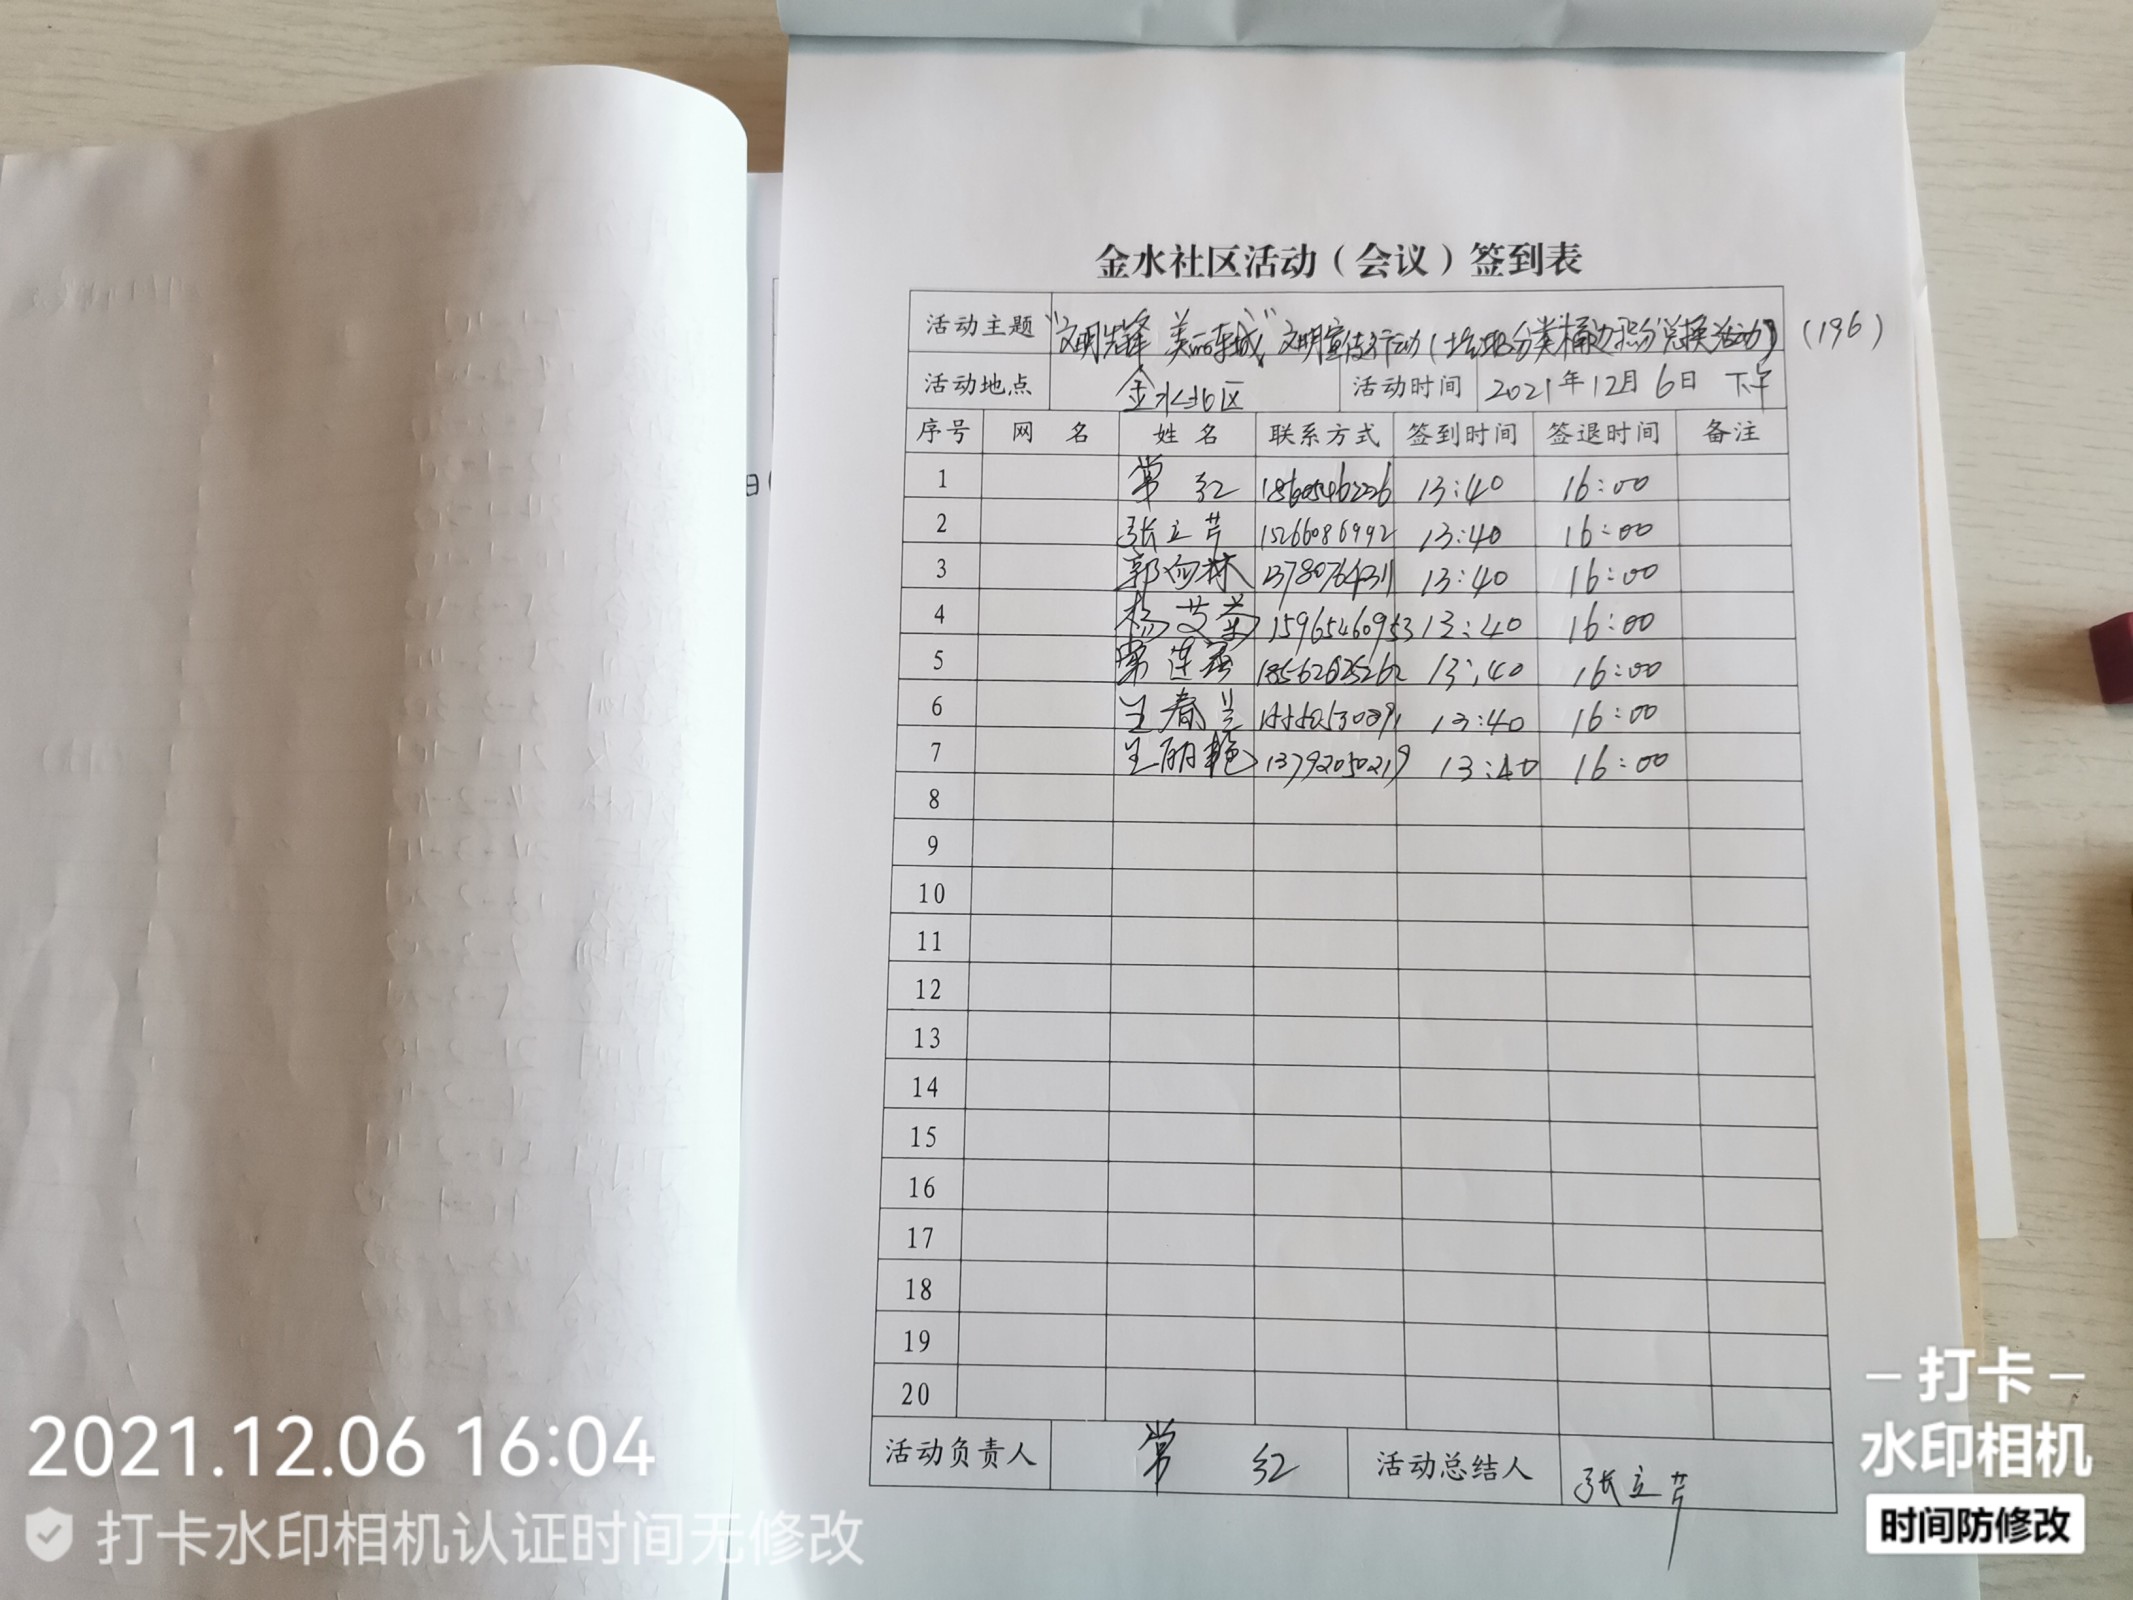 金水社区活动（会议）签到表
活动主题 "文明先锋 美丽东城"文明宣传行动（垃圾分类桶边积分兑换活动）（196）
活动地点 金水北区 活动时间 2021年12月6日 下午
序号 网 名 姓 名 联系方式 签到时间 签退时间 备注
1 常 红 18605462226 13:40 16:00
2 张立芹 15266086992 13:40 16:00
3 郭向林 13780764311 13:40 16:00
4 杨艾荣 15965460953 13:40 16:00
5 常连香 18562025262 13:40 16:00
6 王春兰 13:40 16:00
7 王丽艳 13792050219 13:40 16:00
8
9
10
11
12
13
14
15
16
17
18
19
20
活动负责人 常 红 活动总结人 张立芹
2021.12.06 16:04
打卡水印相机认证时间无修改
打卡
水印相机
时间防修改